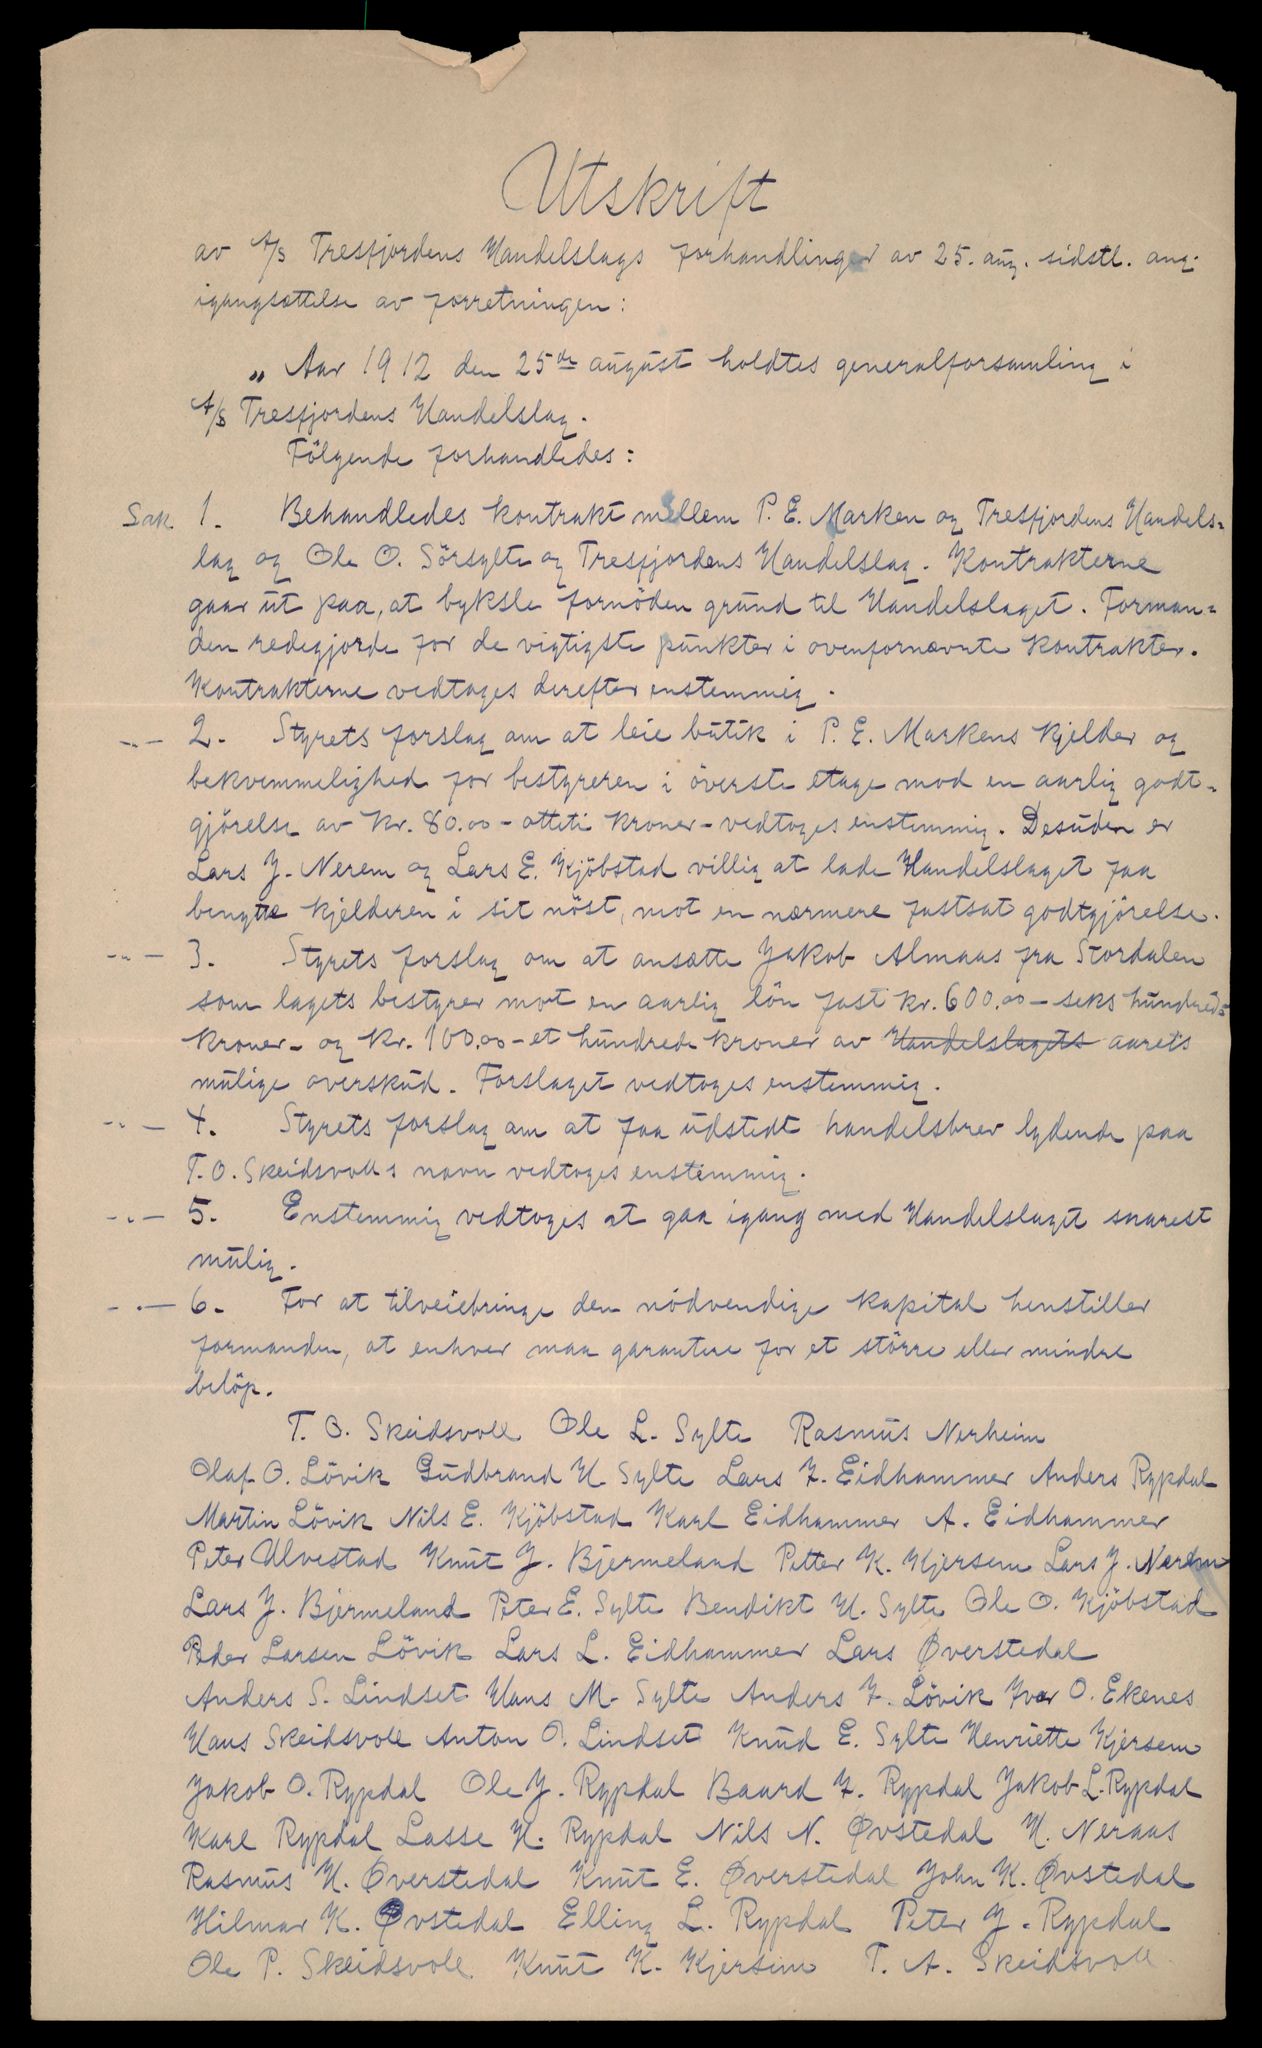 Utskrift
av A/S Tresfjordens Handelslags forhandlinger av 25. aug. sidstl. ang.
igangsættelse av forretningen:
„ Aar 1912 den 25de august holdtes generalforsamling i
A/S Tresfjordens Handelslag.
Följende forhandledes:
Sak 1. Behandledes kontrakt mellem P. E. Marken og Tresfjordens Handels-
lag og Ole O. Sörsylte og Tresfjordens Handelslag. Kontrakterne
gaar ut paa, at byksle fornöden grund til Handelslaget. Forman-
den redegjorde for de vigtigste punkter i ovenfornævnte kontrakter.
Kontrakterne vedtoges derefter enstemmig.
-"- 2. Styrets forslag om at leie butik i P. E. Markens kjelder og
bekvemmelighed for bestyreren i överste etage mod en aarlig godt-
gjörelse av kr. 80.00 - otteti kroner - vedtoges enstemmig. Desuden er
Lars J. Nerem og Lars E. Kjöbstad villig at lade Handelslaget faa
benytte kjelderen i sit nöst, mot en nærmere fastsat godtgjörelse.
-"- 3. Styrets forslag om at ansætte Jakob Almaas fra Stordalen
som lagets bestyrer mot en aarlig lön fast kr. 600.00 - seks hundrede
kroner - og kr. 100.00 - et hundrede kroner av Handelslagets aarets
mulige overskud. Forslaget vedtoges enstemmig.
-"- 4. Styrets forslag om at faa udstedt handelsbrev lydende paa
T. O. Skeidsvolls navn vedtoges enstemmig.
-"- 5. Enstemmig vedtoges at gaa igang med Handelslaget snarest
mulig.
-"- 6. For at tilveiebringe den nödvendige kapital henstiller
formanden, at enhver maa garantere for et större eller mindre
belöp.
T. O. Skeidsvoll Ole L. Sylte Rasmus Nerheim
Olaf O. Lövik Gudbrand H. Sylte Lars K. Eidhammer Anders Rypdal
Martin Lövik Nils E. Kjöbstad Karl Eidhammer A. Eidhammer
Peter Ulvestad Knut J. Bjermeland Petter K. Kjersem Lars J. Nerem
Lars J. Bjermeland Peter E. Sylte Bendikt H. Sylte Ole O. Kjöbstad
Peder Larsen Lövik Lars L. Eidhammer Lars Øverstedal
Anders S. Lindset Hans M. Sylte Anders K. Lövik Ivar O. Ekenes
Hans Skeidsvoll Anton O. Lindset Knud E. Sylte Henriette Kjersem
Jakob O. Rypdal Ole J. Rypdal Baard K. Rypdal Jakob L. Rypdal
Karl Rypdal Lasse H. Rypdal Nils N. Øvstedal H. Neraas
Rasmus H. Øverstedal Knut E. Øverstedal John K. Øvstedal
Hilmar K. Øvstedal Elling L. Rypdal Peter J. Rypdal
Ole P. Skeidsvoll Knut K. Kjersem T. A. Skeidsvoll